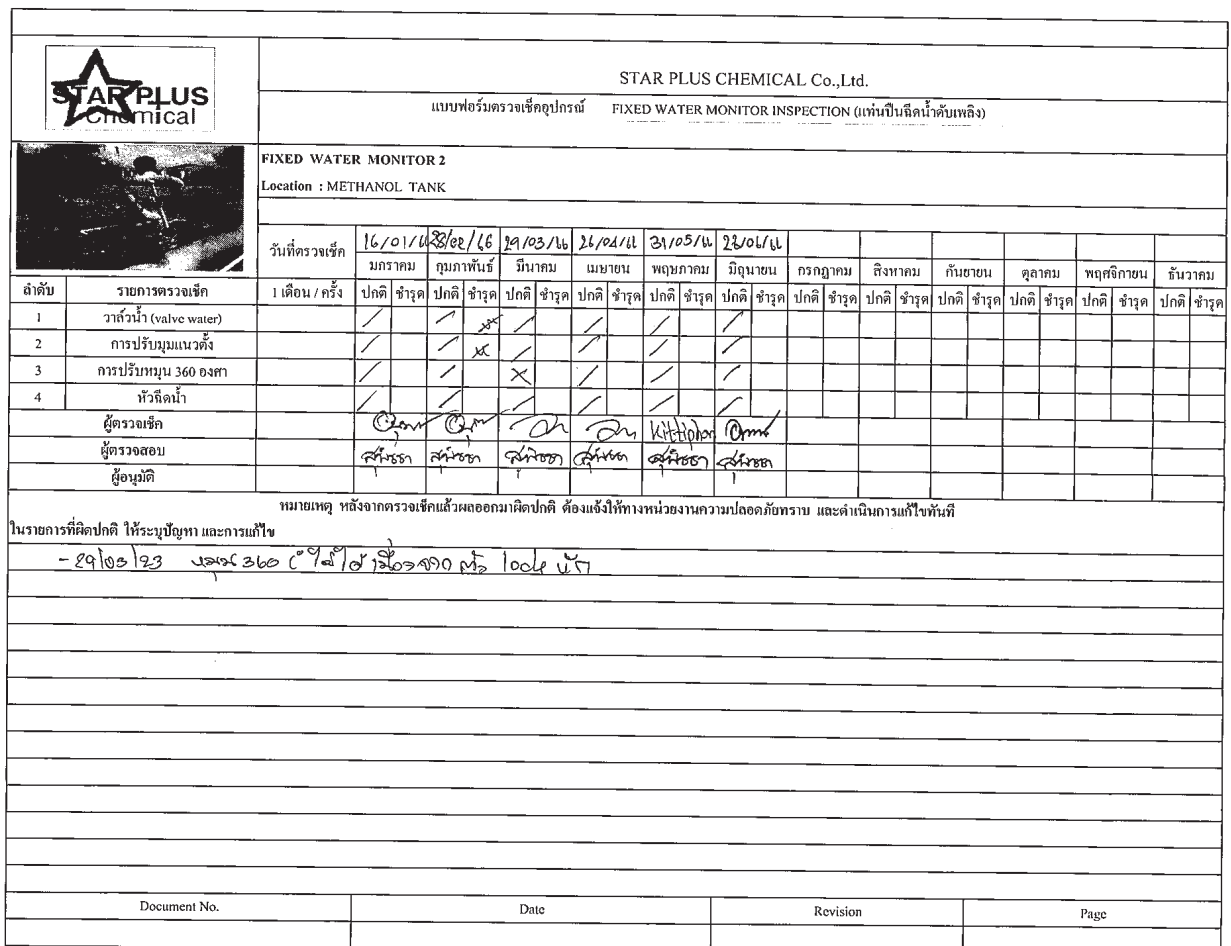 STAR PLUS
Chemical
STAR PLUS CHEMICAL Co.,Ltd.
แบบฟอร์มตรวจเช็คอุปกรณ์ FIXED WATER MONITOR INSPECTION (แท่นปืนฉีดน้ำดับเพลิง)
FIXED WATER MONITOR 2
Location : METHANOL TANK
วันที่ตรวจเช็ค 16/01/66 28/02/66 29/03/66 26/04/66 31/05/66
มกราคม กุมภาพันธ์ มีนาคม เมษายน พฤษภาคม มิถุนายน กรกฎาคม สิงหาคม กันยายน ตุลาคม พฤศจิกายน ธันวาคม
ลำดับ รายการตรวจเช็ค 1 เดือน / ครั้ง ปกติ ชำรุด ปกติ ชำรุด ปกติ ชำรุด ปกติ ชำรุด ปกติ ชำรุด ปกติ ชำรุด ปกติ ชำรุด ปกติ ชำรุด ปกติ ชำรุด ปกติ ชำรุด ปกติ ชำรุด ปกติ ชำรุด
1 วาล์วน้ำ (valve water) / / / / / /
2 การปรับมุมแนวตั้ง / / / / / /
3 การปรับหมุน 360 องศา / / X / / /
4 หัวฉีดน้ำ / / / / / /
ผู้ตรวจเช็ค Kittiphon
ผู้ตรวจสอบ
ผู้อนุมัติ
หมายเหตุ หลังจากตรวจเช็คแล้วผลออกมาผิดปกติ ต้องแจ้งให้ทางหน่วยงานความปลอดภัยทราบ และดำเนินการแก้ไขทันที
ในรายการที่ผิดปกติ ให้ระบุปัญหา และการแก้ไข
- 29/03/23 หมุน 360 ํ ไม่ได้ เนื่องจาก ตัว lock
Document No. Date Revision Page